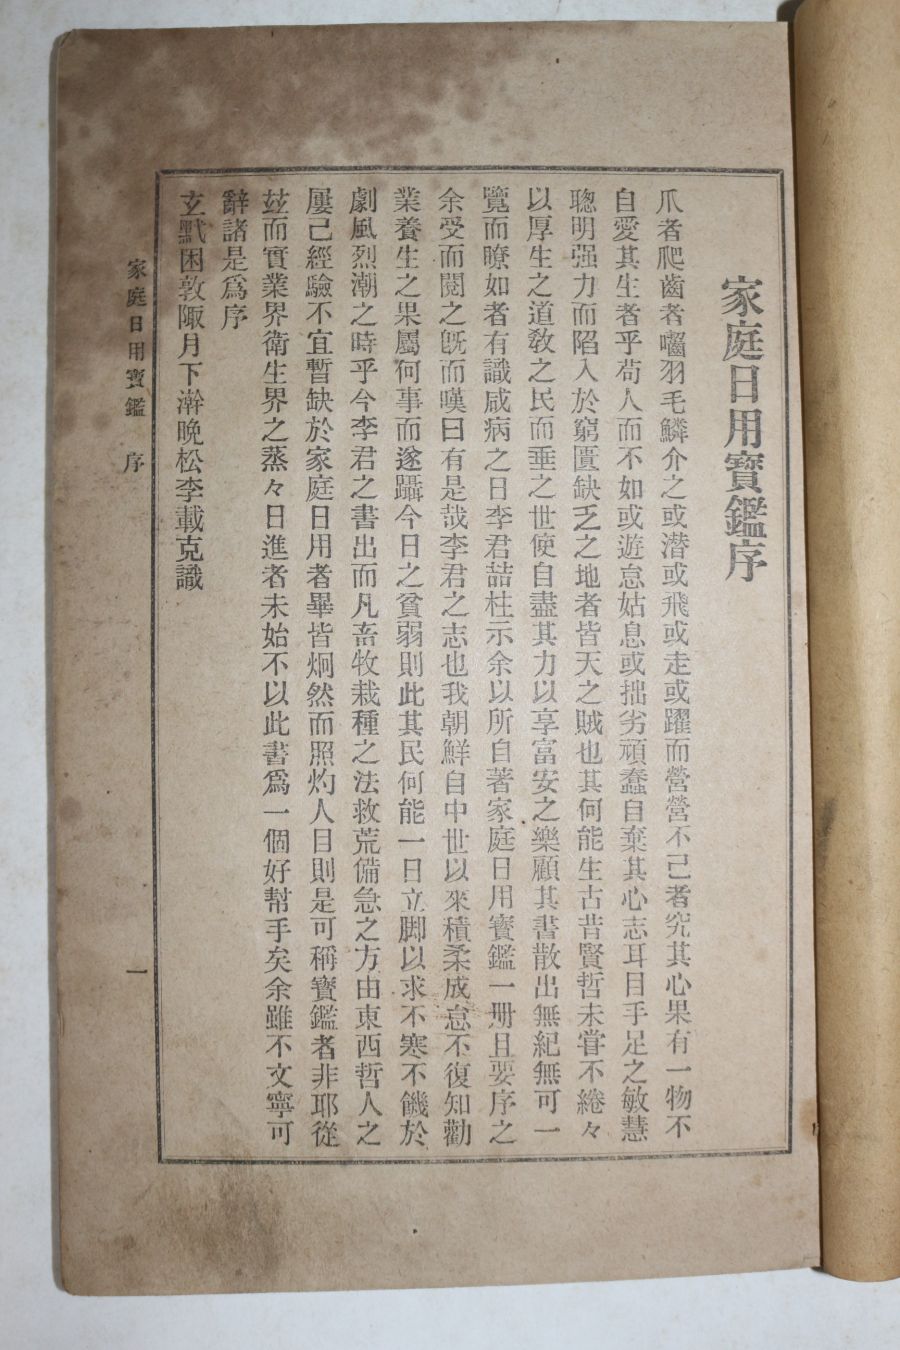 家庭日用寶鑑序
爪者爬齒者囓羽毛鱗介之或潜或飛或走或躍而營營不已者究其心果有一物不
自愛其生者乎茍人而不如或遊怠姑息或拙劣頑蠢自棄其心志耳目手足之敏慧
聰明强力而陷入於窮匱缺乏之地者皆天之賊也其何能生古昔賢哲未甞不綣々
以厚生之道敎之民而垂之世使自盡其力以享富安之樂顧其書散出無紀無可一
覽而瞭如者有識咸病之日李君喆柱示余以所自著家庭日用寶鑑一册且要序之
余受而閱之旣而嘆曰有是哉李君之志也我朝鮮自中世以來積柔成怠不復知勸
業養生之果屬何事而遂躡今日之貧弱則此其民何能一日立脚以求不寒不饑於
劇風烈潮之時乎今李君之書出而凡畜牧栽種之法救荒備急之方由東西哲人之
屢已經驗不宜暫缺於家庭日用者畢皆炯然而照灼人目則是可稱寶鑑者非耶從
玆而實業界衛生界之蒸々日進者未始不以此書爲一個好幇手矣余雖不文寧可
辭諸是爲序
玄黓困敦陬月下澣晩松李載克識
家庭日用寶鑑 序
一